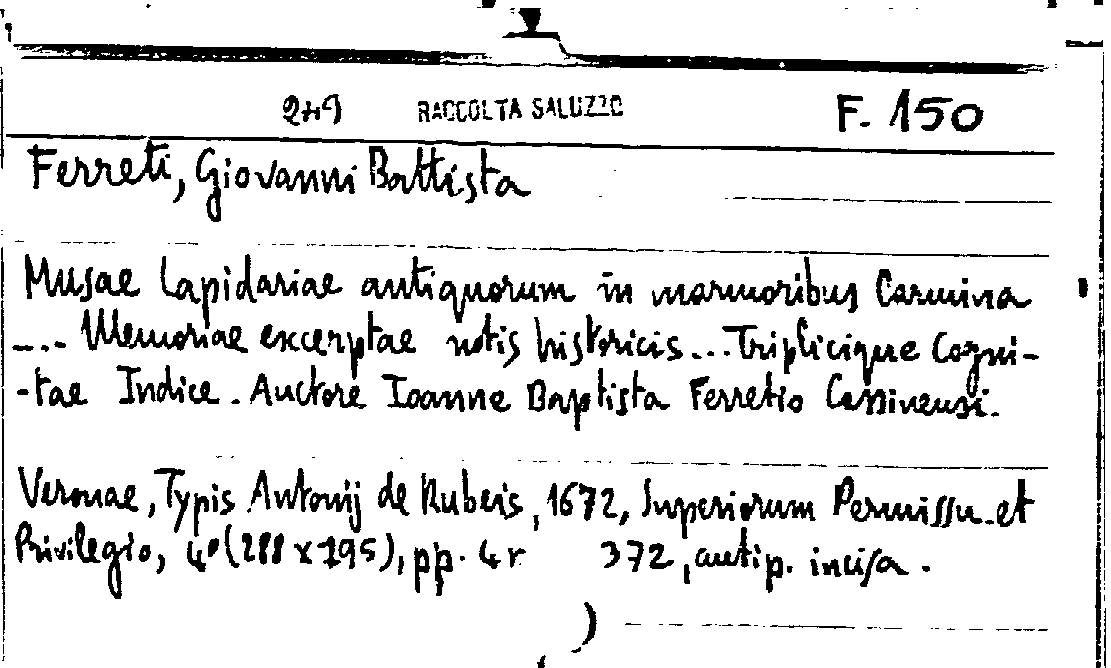 249 RACCOLTA SALUZZO F. 150
Ferreti, Giovanni Battista
Musae Lapidariae antiquorum in marmoribus Carmina
--.- Memoriae excerptae notis historicis... Triplicique Cogni-
-tae Indice. Auctore Ioanne Baptista Ferretio Cassinensi.
Veronae, Typis Antonij de Rubeis, 1672, Superiorum Permissu et
Privilegio, 4º (288 x 195), pp. 4 r 372, antip. incisa.